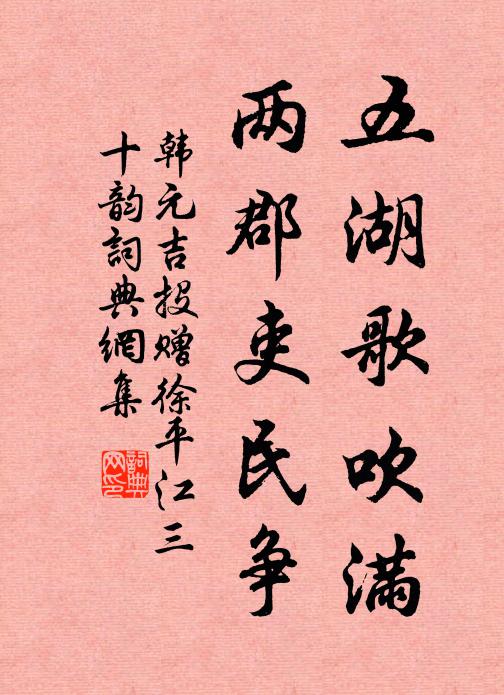 五湖歌吹满
两郡吏民争
韩元吉投赠徐平江三
十韵詞典網集
詞典网印